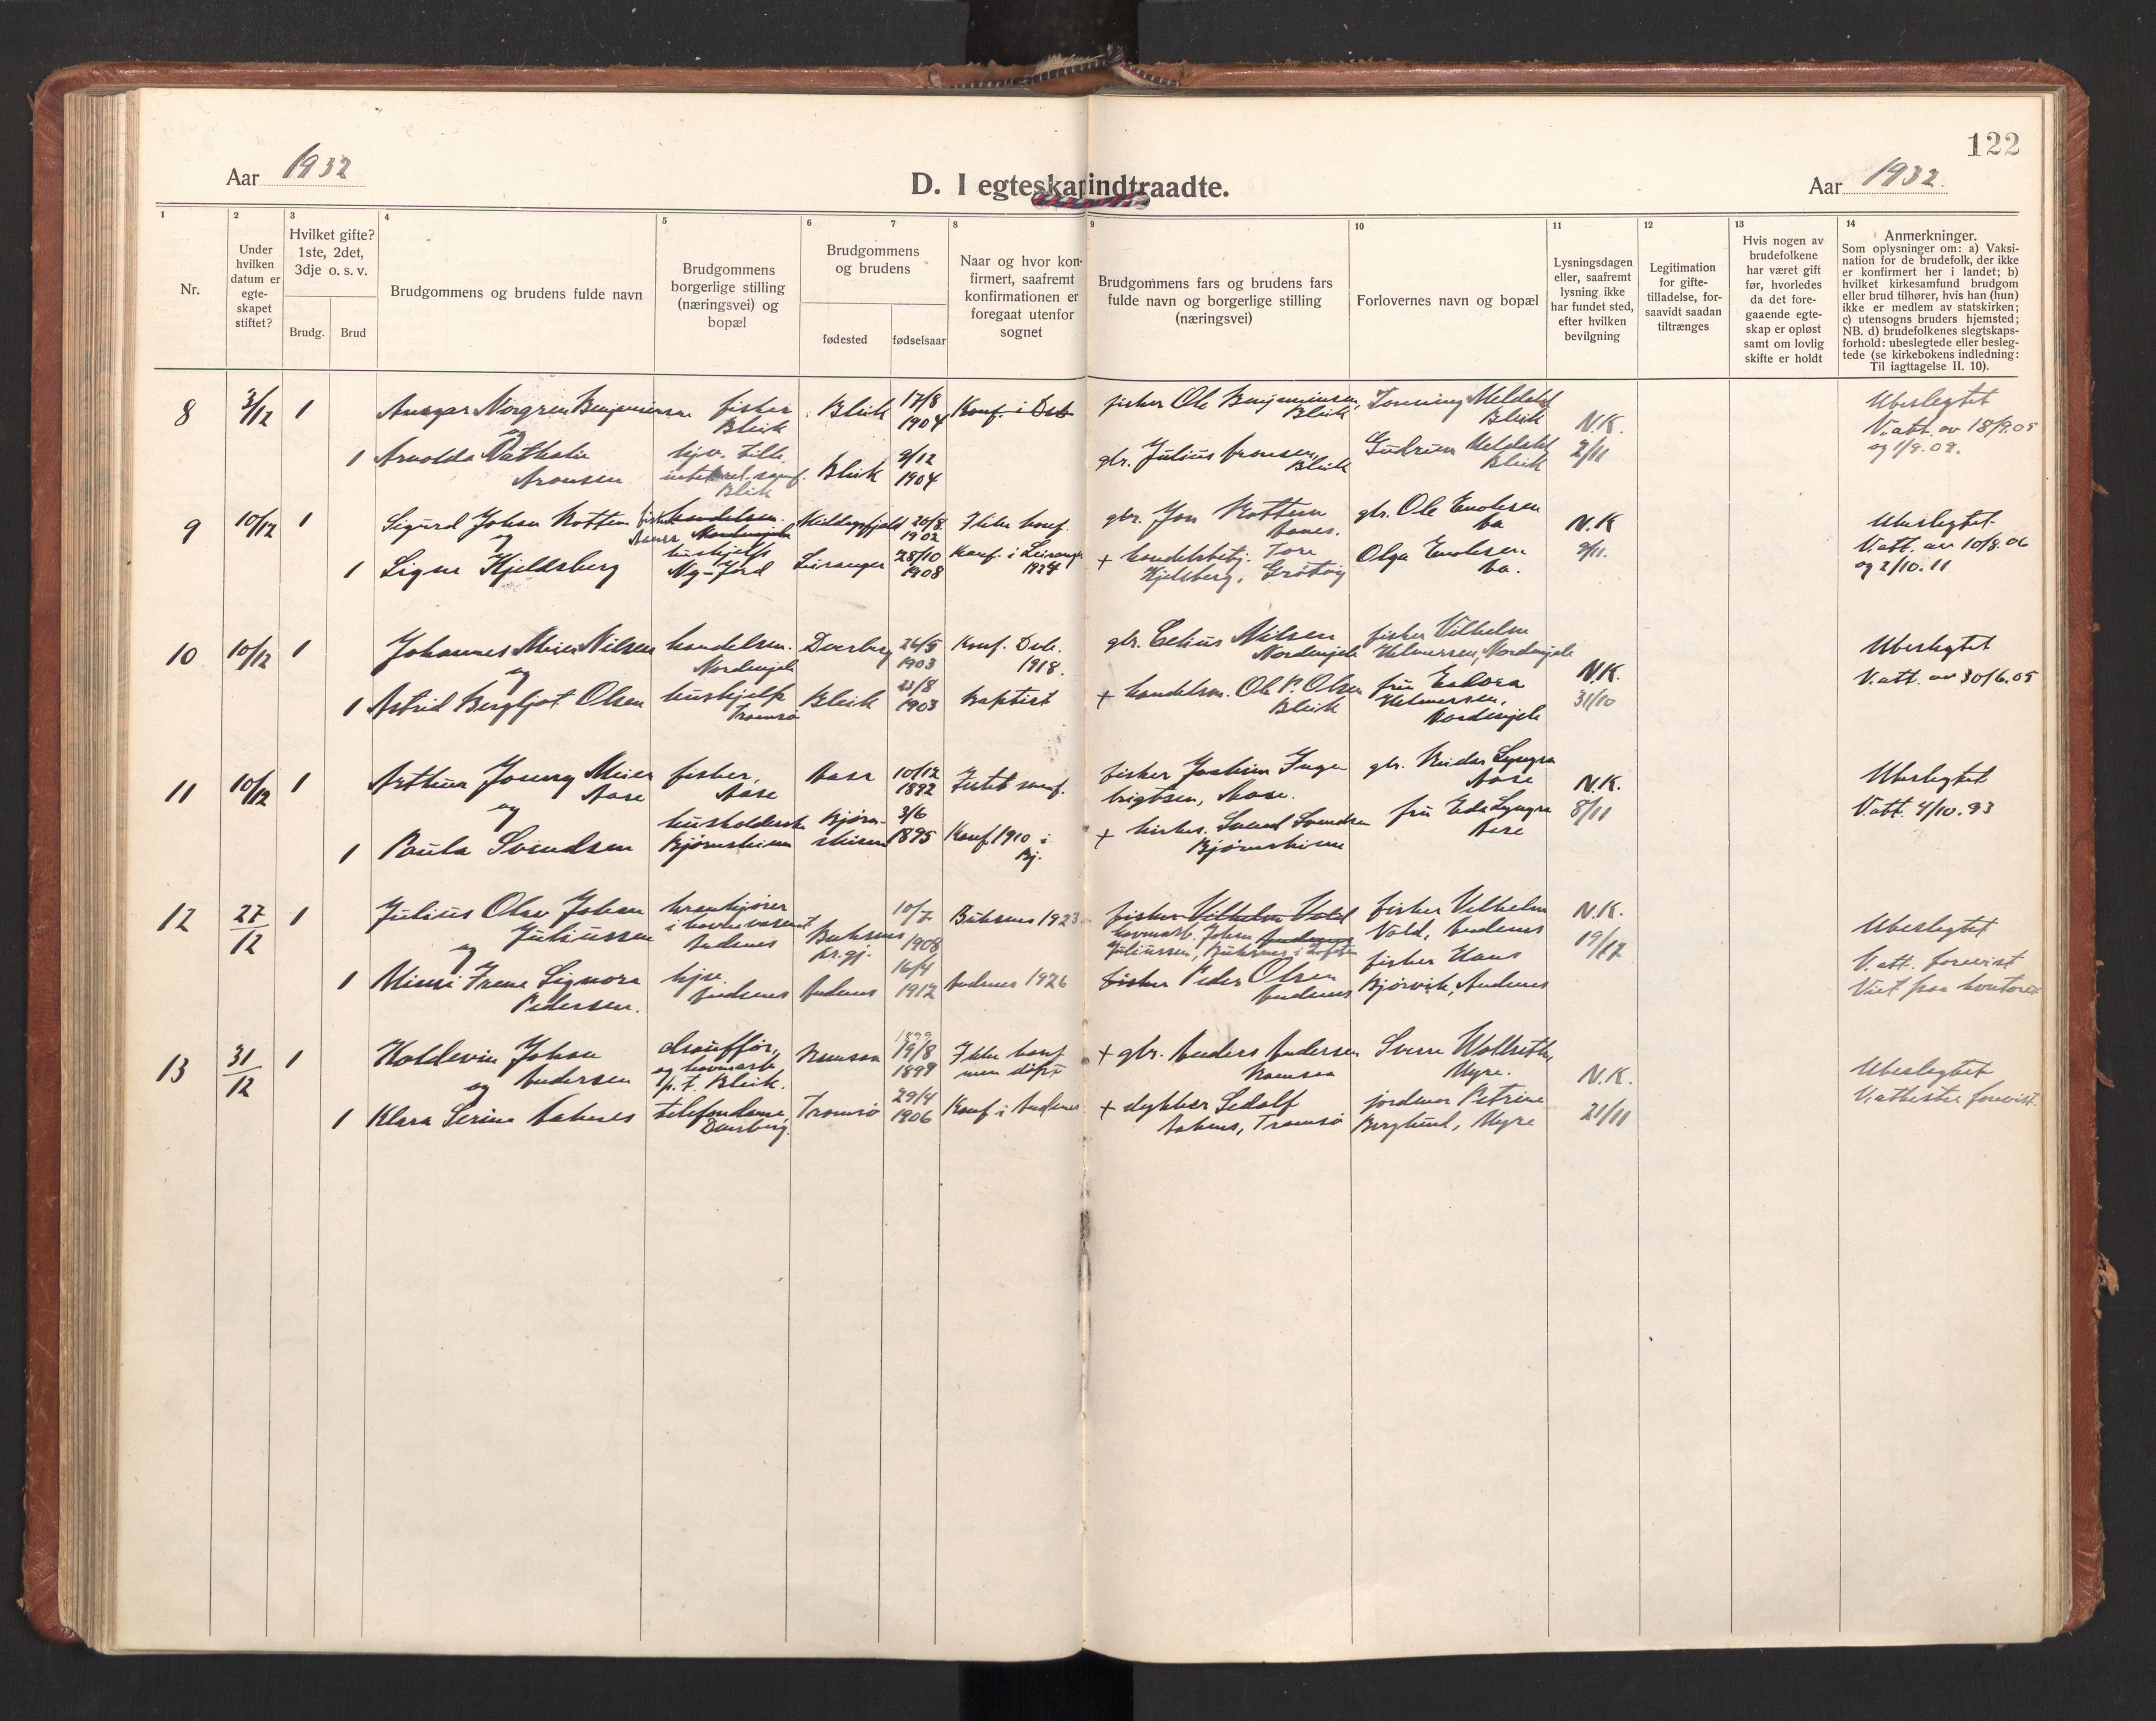 122
Aar 1932
D. I egteskap indtraadte.
Aar 1932.
1 2 3 4 5 6 7 8 9 10 11 12 13 14
Nr.
Under
hvilken
datum er
egte-
skapet
stiftet?
Hvilket gifte?
1ste, 2det,
3dje o. s. v.
Brudg. Brud
Brudgommens og brudens fulde navn
Brudgommens
borgerlige stilling
(næringsvei) og
bopæl
Brudgommens
og brudens
fødested fødselsaar
Naar og hvor kon-
firmert, saafremt
konfirmationen er
foregaat utenfor
sognet
Brudgommens fars og brudens fars
fulde navn og borgerlige stilling
(næringsvei)
Forlovernes navn og bopæl
Lysningsdagen
eller, saafremt
lysning ikke
har fundet sted,
efter hvilken
bevilgning
Legitimation
for gifte-
tilladelse, for-
saavidt saadan
tiltrænges
Hvis nogen av
brudefolkene
har været gift
før, hvorledes
da det fore-
gaaende egte-
skap er opløst
samt om lovlig
skifte er holdt
Anmerkninger.
Som oplysninger om: a) Vaksi-
nation for de brudefolk, der ikke
er konfirmert her i landet; b)
hvilket kirkesamfund brudgom
eller brud tilhører, hvis han (hun)
ikke er medlem av statskirken;
c) utensogns bruders hjemsted;
NB. d) brudefolkenes slegtskaps-
forhold: ubeslegtede eller besleg-
tede (se kirkebokens indledning:
Til iagttagelse II. 10).
8 3/12 1 Ansgar Norgren Benjaminsen
og
fisker
Bleik
Bleik 17/8
1904
Konf. i Dvb.
fisker Ole Benjaminsen,
Bleik
Tonning Meldahl
Bleik
N.K.
2/11
Ubeslegtet
V.att. av 18/9.05
og 1/9.09.
1 Arnolda Nathalie
Aronsen
hjv. tilh.
intet rel. samf.
Bleik
Bleik 9/12
1904
gbr. Julius Aronsen,
Bleik
Gudrun Meldahl
Bleik
9 10/12 1 Sigurd Johan Rottem
og
fisker handelsm.
Aanes Nordmjele
20/8
1902
Ikke konf.
gbr. Jon Rottem
Aanes.
gbr. Ole Enoksen
Aa
N.K
9/11.
Ubeslegtet.
V.att. av 10/8.06
og 2/10.11
1 Signe Kjeldsberg
hushjelp
Ny-Jord
Leiranger 28/10
1908
Konf. i Leiranger
1924
+ handelsbetj. Tore
Kjelsberg, Grøtøy
Olga Enoksen
Aa.
10 10/12 1 Johannes Meier Nilsen
og
handelsm.
Nordmjele
Dverberg 26/5
1903
Konf. Dvb.
1918.
gbr. Celius Nilsen
Nordmjele
fisker Vilhelm
Helmersen, Nordmjele
N.K.
31/10
Ubeslegtet
V.att. av 30/6.05
1 Astrid Bergljot Olsen
hushjelp
Tromsø
Bleik 22/8
1903
Baptist
+ handelsm. Ole P. Olsen
Bleik
fru
Helmersen,
Nordmjele
11 10/12 1 Arthur Jonny Meier
Aase
og
fisker,
Aase
Aase 10/12
1892
Istet samf.
fisker Joakim Inge
brigtsen, Aase.
gbr. Reidar Lyngra
Aase
N.K.
8/11
Ubeslegtet
V.att. 4/10.93
1 Paula Svendsen
husholderske
Bjørnskinn
Bjørn-
skinn
3/6
1895
Konf. 1910 i
Bj.
+ kirkes. Svend Svendsen
Bjørnskinn
fru Eda Lyngra
Aase
12 27/12 1 Julius Olav Johan
Juliussen
og
krankjører
i havnevæsenet
Andenes
Buksnes
pr.gj.
10/7
1908
Buksnes 1923
fisker Vilhelm Vold
havnearb. Johan Andenes
Juliussen, Buksnes i Lofoten
fisker Vilhelm
Vold, Andenes
N.K.
19/12
Ubeslegtet
V.att. forevist
Viet paa kontoret
1 Mimi Irene Signora
Pedersen.
hjv.
Andenes
Andenes 16/4
1912
Andenes 1926
fisker Peder Olsen
Andenes
fisker Hans
Bjørvik, Andenes
13 31/12 1 Holdevin Johan
Andersen
og
chauffør,
og havnearb.
p.t. Bleik.
Ramsaa 1899
19/8
1899
Ikke konf
men døpt
+ gbr. Anders Andersen
Ramsaa
Sverre Wolbreth,
Myre.
N.K.
21/11
Ubeslegtet
V.attester forevist.
1 Klara Serine Aakenes
telefondame,
Dverberg.
Tromsø 29/4
1906
Konf i Andenes.
+ dykker Sedolf
Aakenes, Tromsø
jordmor Petrine
Berglund, Myre